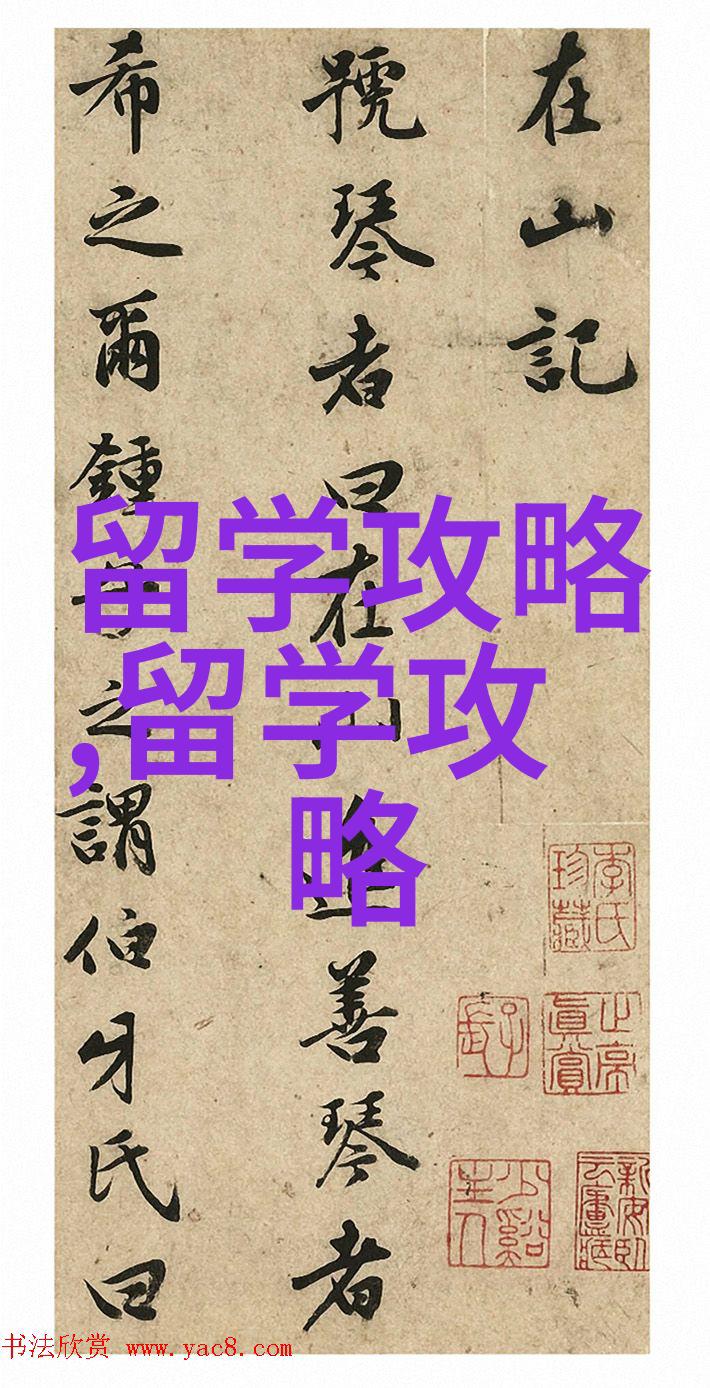 在山記
號琴者曰在山善琴者
希之爾鍾子之謂伯牙氏曰
留学攻略
,留学攻
略
少谿主人
书法欣赏 www.yac8.com